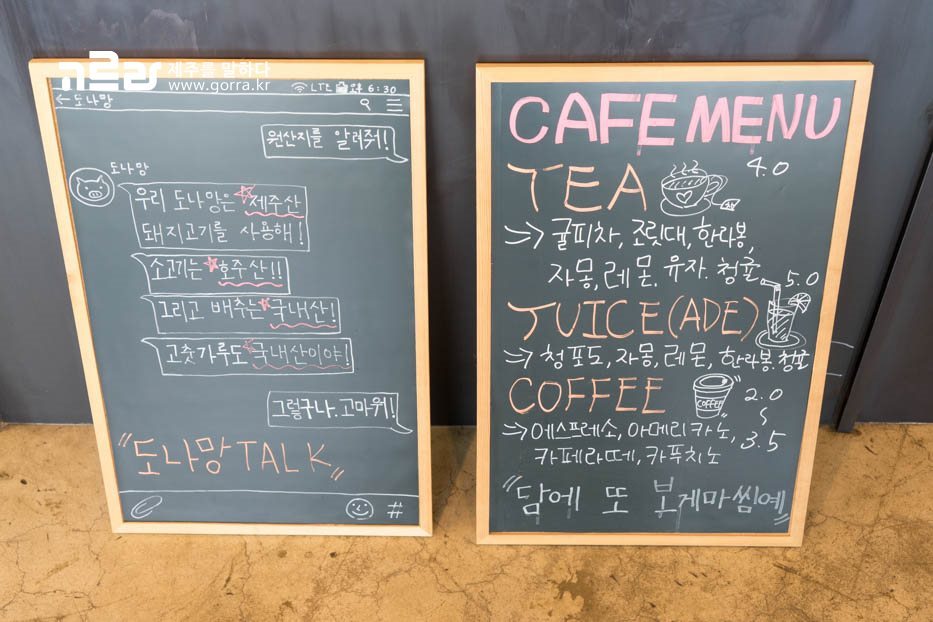 고르라 제주를 말하다
www.gorra.kr
LTE 오후 6:30
← 도나망
원산지를 알려줘!
도나망
우리 도나망은 제주산
돼지고기를 사용해!
소고기는 호주산!!
그리고 배추는 국내산!
고춧가루도 국내산이야!
그렇구나. 고마워!
"도나망 TALK"
#
CAFE MENU
TEA 4.0
귤피차, 조릿대, 한라봉,
자몽, 레몬. 유자. 청귤
5.0
JUICE(ADE)
청포도, 자몽, 레몬, 한라봉. 청귤
COFFEE
COFFEE
2.0
~
3.5
에스프레소, 아메리카노,
카페라떼, 카푸치노
"담에 또 보게마씸예"